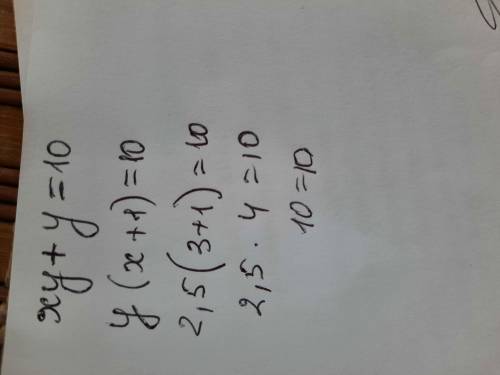 xy + y = 10
y (x + 1) = 10
2,5 (3+1) = 10
2,5 · 4 = 10
10 = 10